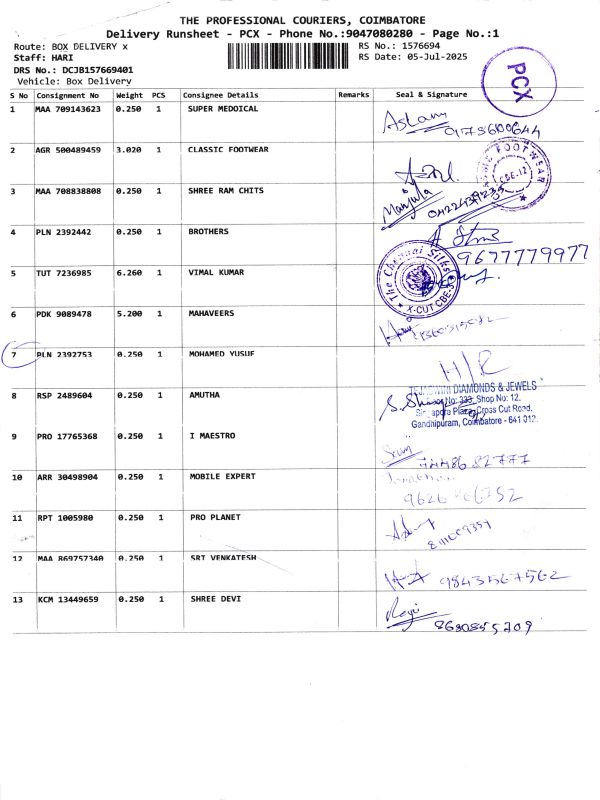 THE PROFESSIONAL COURIERS, COIMBATORE
Delivery Runsheet - PCX - Phone No.:9047080280 - Page No.:1
Route: BOX DELIVERY x
RS No.: 1576694
Staff: HARI
RS Date: 05-Jul-2025
DRS No.: DCJB157669401
Vehicle: Box Delivery
PCX
S No Consignment No Weight PCS Consignee Details Remarks Seal & Signature
1 MAA 709143623 0.250 1 SUPER MEDOICAL
Aslam
2 AGR 500489459 3.020 1 CLASSIC FOOTWEAR
FOOTWEAR
CBE-12
3 MAA 708838808 0.250 1 SHREE RAM CHITS
Manjula
4 PLN 2392442 0.250 1 BROTHERS
9677779977
5 TUT 7236985 6.260 1 VIMAL KUMAR
The Chennai Silks
X-CUT CBE
6 PDK 9089478 5.200 1 MAHAVEERS
7 PLN 2392753 0.250 1 MOHAMED YUSUF
H/R
8 RSP 2489604 0.250 1 AMUTHA
TEJASWINI DIAMONDS & JEWELS
No: 333, Shop No: 12.
Singapore Plaza, Cross Cut Road.
Gandhipuram, Coimbatore - 641 012.
9 PRO 17765368 0.250 1 I MAESTRO
10 ARR 30498904 0.250 1 MOBILE EXPERT
11 RPT 1005980 0.250 1 PRO PLANET
12 MAA 869757340 0.250 1 SRI VENKATESH
9843567562
13 KCM 13449659 0.250 1 SHREE DEVI
8680855209